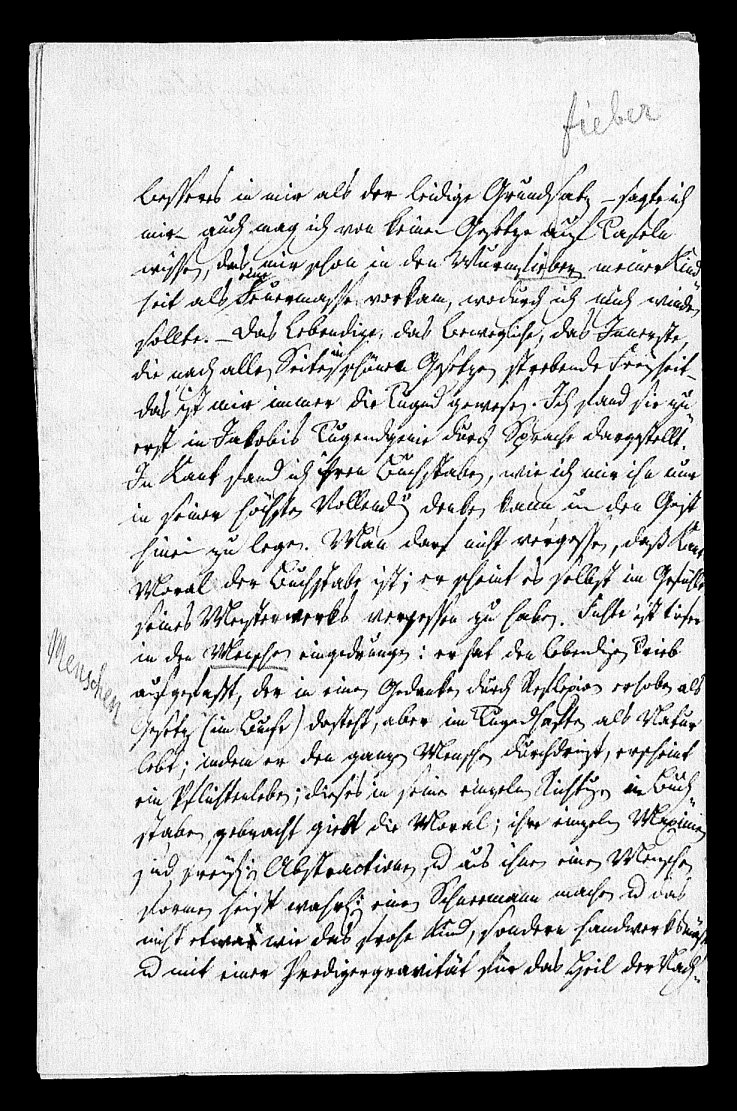 fieber
besseres in mir als der leidige Grundsatz – sagte ich
mir – auch mag ich von keinem Gesetze auf Tafeln
wissen, das mir schon in den Wurmfiebern meiner Kind
heit als eine Feuermasse vorkam, wodurch ich mich winden
sollte. – Das Lebendige, das Bewegliche, das Innerste,
die nach allen Seiten in schönen Gesetzen strebende Freiheit –
das ist mir immer die Tugend gewesen. Ich fand sie zu
erst in Jakobis Tugendgenie durch Sprache dargestellt.
In Kant fand ich ihren Buchstaben, wie ich mir ihn nur
in seiner höchsten Vollendg denken kann um den Geist
hinein zu legen. Man darf nicht vergessen, daß Kants
Moral der Buchstabe ist; er scheint es selbst im Gefühle
seines Meisterwerks vergessen zu haben. Fichte ist tiefer
in den Menschen eingedrungen: er hat den lebendigen Trieb
Menschen
aufgefaßt, der in einen Gedanken durch Reflexion erhoben als
Gesetz (im Buche) dasteht, aber im Tugendhaften als Natur
lebt; indem er den ganzen Menschen durchdringt, erscheint
ein Pflichtenleben; dieses in seinen einzelnen Richtungen in Buch
staben gebracht giebt die Moral; ihre einzelnen Maximen
sind Abstractionen u aus ihnen einen Menschen
formen heißt wahrlich einen Schneemann machen u das
nicht etwa wie das frohe Kind, sondern handwerksmäßig
u mit einer Predigergravität für das Heil der Nach-